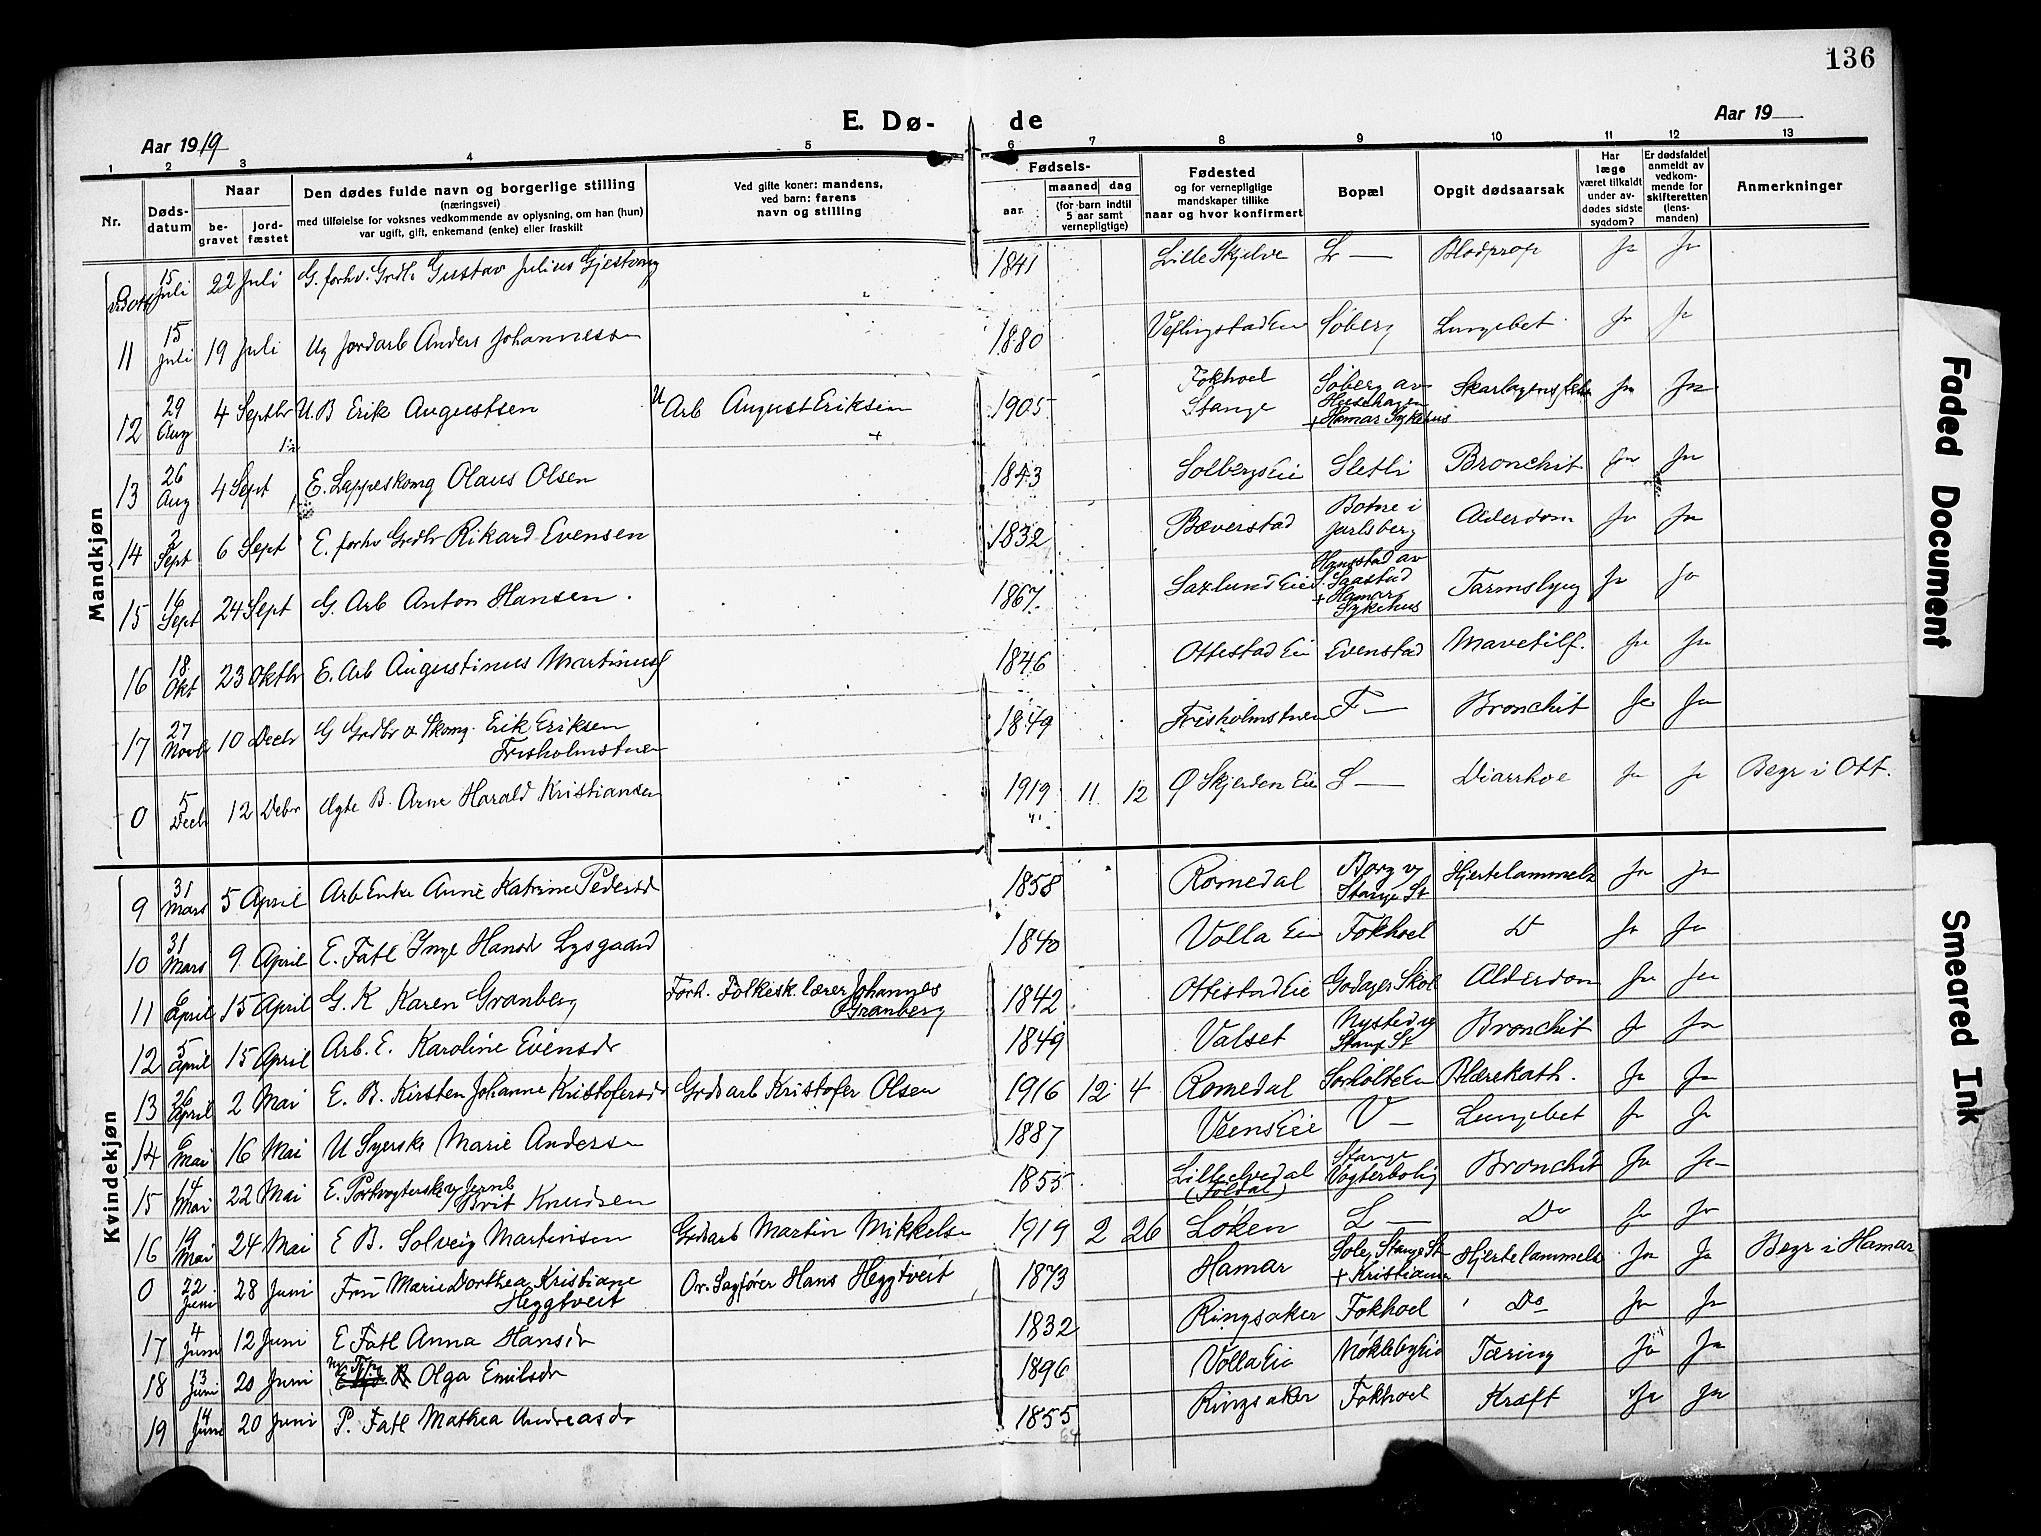 136
E. Dø- de
Aar 1919
Aar 19
1 2 3 4 5 6 7 8 9 10 11 12 13
Nr.
Døds-
datum
Naar
be-
gravet
jord-
fæstet
Den dødes fulde navn og borgerlige stilling
(næringsvei)
med tilføielse for voksnes vedkommende av oplysning, om han (hun)
var ugift, gift, enkemand (enke) eller fraskilt
Ved gifte koner: mandens,
ved barn: farens
navn og stilling
Fødsels-
aar
maaned dag
(for barn indtil
5 aar samt
vernepligtige)
Fødested
og for vernepligtige
mandskaper tillike
naar og hvor konfirmert
Bopæl
Opgit dødsaarsak
Har
læge
været tilkaldt
under av-
dødes sidste
sygdom?
Er dødsfaldet
anmeldt av
vedkom-
mende for
skifteretten
(lens-
manden)
Anmerkninger
Mandkjøn
15 Juli 22 Juli G. forhv. Grdb. Gustav Julius Gjestvang 1841 Lille Skjelve L — Blodprop Ja Ja
11 15 Juli 19 Juli Ug Jordarb Anders Johannessen 1880 Veflingstad Eie Søberg Lungebet. Ja Ja
12 29 Aug 4 Septbr U. B Erik Augustsen U Arb August Eriksen 1905 Fokhoel Stange Søberg av + Hamar Sykehus Skarlagensfeber Ja Ja
13 26 Aug 4 Sept E. Lappeskomg Olaus Olsen 1843 Solbergs Eie Sletli Bronchit Ja Ja
14 2 Sept 6 Sept E. forhv Grdbr Rikard Evensen 1832 Bæverstad Botne i Jarlsberg Alderdom Ja Ja
15 16 Sept 24 Sept G. Arb Anton Hansen. 1867 Saxlund Eie av Saastad + Hamar Sykehus Tarmslyng Ja Ja
16 18 Okt 23 Oktbr E. Arb Augustinus Martinus 1846 Ottestad Eie Evenstad Mavetilf. Ja Ja
17 27 Novb 10 Decbr G Grdbr & Skomg. Erik Eriksen Frisholmstuen 1849 Frisholmstuen F — Bronchit Ja Ja
0 5 Decb 12 Debr Ægte B. Arne Harald Kristiansen 1919 11 12 Ø Skjerden Eie S — Diarrhoe Ja Ja Begr i Ott.
Kvindekjøn
9 31 Mars 5 April Arb Enke Anne Katrine Pedersd 1858 Romedal Borg v/ Stange St Hjertelammelse Ja Ja
10 31 Mars 9 April E. Fatl Inge Hansd Lysgaard 1840 Volla Eie Fokhoel Do Ja Ja
11 April 15 April G. K Karen Granberg Forh. Folkesk. lærer Johannes Granberg 1842 Ottestad Eie Godager Skole Alderdom Ja Ja
12 5 April 15 April Arb. E. Karoline Evensdr 1849 Valset Nysted v/ Stange St Bronchit Ja Ja
13 26 April 2 Mai E. B. Kirsten Johanne Kristofersdr Grdsarb Kristofer Olsen 1916 12 4 Romedal Sorholte Eie Blærekath. Ja Ja
14 Mai 16 Mai U Syerske Marie Andersen 1887 Veens Eie V — Lungebet Ja Ja
15 14 Mai 22 Mai E. Portvogterske v/ Jernb Brit Knudsen 1855 Lille Elvedal (Foldal) Stange Vogterbolig Bronchit Ja Ja
16 19 Mai 24 Mai E B. Solveig Martinsen Grdsarb Martin Mikkelsen 1919 2 26 Løken L — Do Ja Ja
0 22 Juni 28 Juni Fru Marie Dorthea Kristiane Heggtveit Ov. Sagfører Hans Heggtveit 1873 Hamar Stange St + Kristiania Hjertelammelse Ja Ja Begr i Hamar
17 4 Juni 12 Juni E Fatl Anna Hansdr 1832 Ringsaker Fokhoel Do Ja Ja
18 13 Juni 20 Juni Olga Emilsdr 1896 Volla Eie Møkleby Eie Tæring Ja Ja
19 14 Juni 20 Juni P. Fatl Mathea Andreasdr 1855 64 Ringsaker Fokhoel Kræft Ja Ja
Faded Document
Smeared Ink